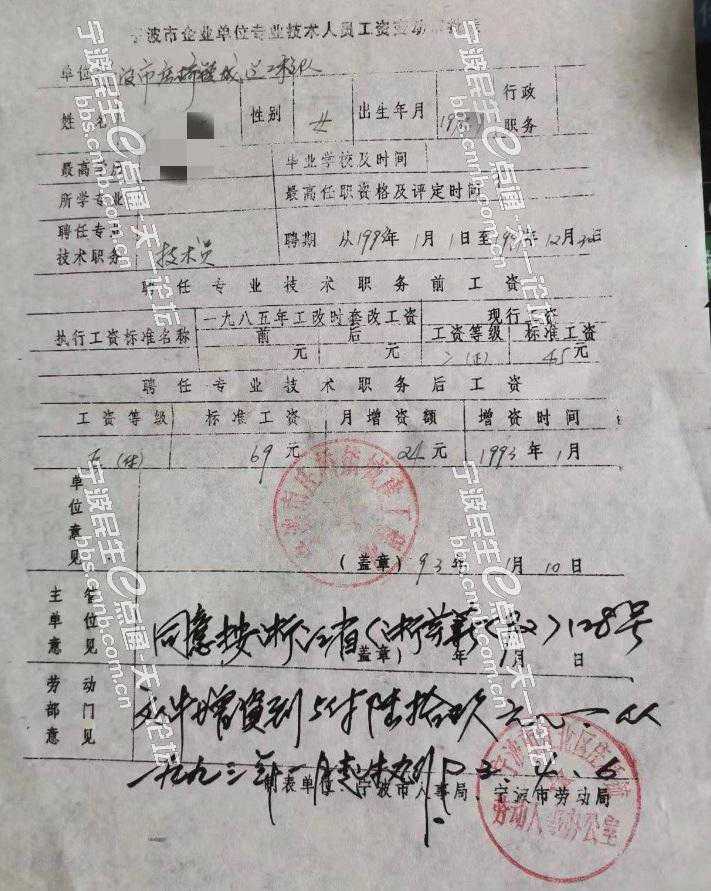 宁波市企业单位专业技术人员工资变动审批表
单位 宁波市庄桥镇城建工程队
姓名 性别 女 出生年月 19 行政职务
最高学历 毕业学校及时间
所学专业 最高任职资格及评定时间
聘任专业技术职务 技术员 聘期 从1993年1月1日至 年12月30日
聘任专业技术职务前工资
执行工资标准名称 一九八五年工改时套改工资 现行工资
前 后 工资等级 标准工资
元 元 (正) 45元
聘任专业技术职务后工资
工资等级 标准工资 月增资额 增资时间
69元 24元 1993年1月
单位意见
(盖章) 93年1月10日
主管单位意见
同意按浙江省 128号
(盖章) 年 月 日
劳动部门意见
文件增资到 陆拾玖元 从
一九九三年一月起
制表单位 宁波市人事局、宁波市劳动局
劳动人事办公室
宁波民生e点通·天一论坛
bbs.cnnb.com
宁波民生e点通·天一论坛
bbs.cnnb.com
宁波民生e点通·天一论坛
bbs.cnnb.com
宁波民生e点通·天一论坛
bbs.cnnb.com